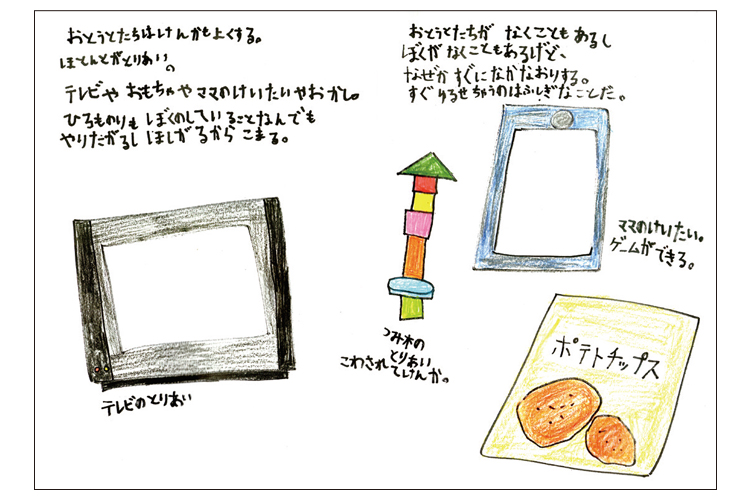 おとうとたちはけんかも上くする。
ほとんどがとりあい。
テレビや おもちゃや ママのけいたいやおかし。
ひろものりも ぼくのしていることなんでも
やりたがるし ほしがるから こまる。
おとうとたちが なくこともあるし
ぼくが なくこともあるけど、
なぜか すぐになかなおりする。
すぐ ゆるせちゃうのはふしぎなことだ。
テレビのとりあい
つみ木の
とりあい
こわされてけんか。
ママのけいたい。
ゲームができる。
ポテトチップス